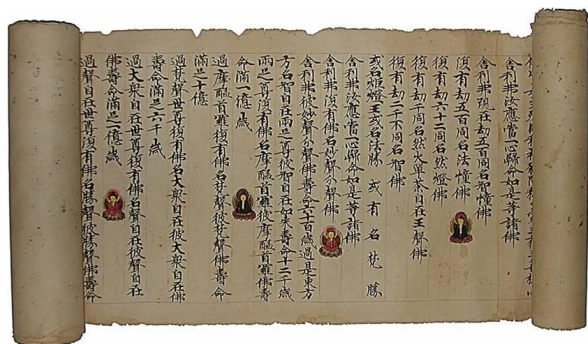 舍利弗汝應當一心歸命如是等諸佛
舍利弗現在劫五百同名智幢佛
復有劫五百同名法幢佛
復有劫六十二同名然燈佛
復有劫同名然火單荼自在王聲佛
復有劫二千不同名智佛
或名燈王或名法勝 或有名梵勝
舍利弗汝應當一心歸命如是等諸佛
舍利弗復有佛名妙聲分聲佛
舍利弗彼妙聲分聲佛壽命六十百歲過是東方
方名智自在兩足尊彼智自在如來壽命十二千歲
兩足尊復有佛名摩醯首羅彼摩醯首羅佛壽
命滿一億歲
過摩醯首羅復有佛名梵聲彼梵聲佛壽命
滿足十億
過梵聲世尊復有佛名大衆自在彼大衆自在佛
壽命滿足六千歲
過大衆自在世尊復有佛名聲自在彼聲自在
佛壽命滿足一億歲
過聲自在世尊復有佛名勝聲彼勝聲佛壽命